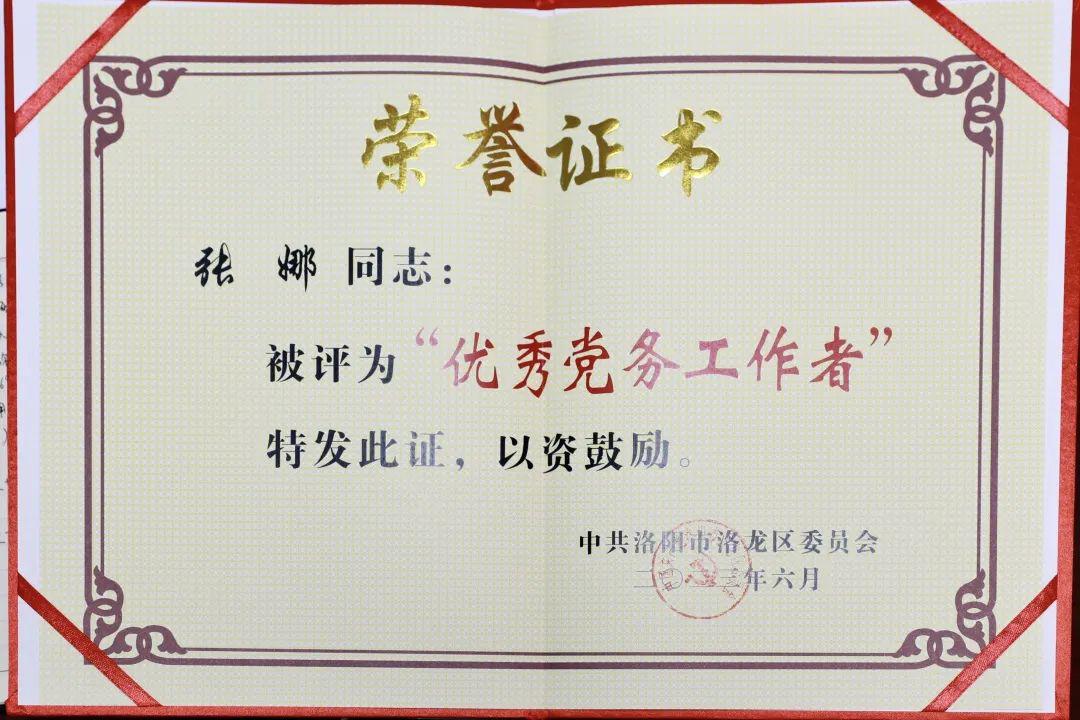 荣誉证书
张娜同志：
被评为“优秀党务工作者”
特发此证，以资鼓励。
中共洛阳市洛龙区委员会
二〇二三年六月